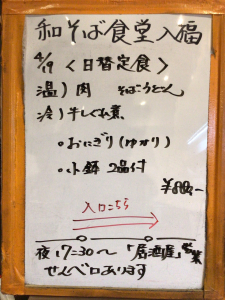 和そば食堂入福
4/19 <日替定食>
温) 肉 そばうどん
冷) 牛しぐれ煮
・おにぎり(ゆかり)
・小鉢 2品付
¥880.-
入口こちら
夜17:30〜「居酒屋」営業
せんべロあります